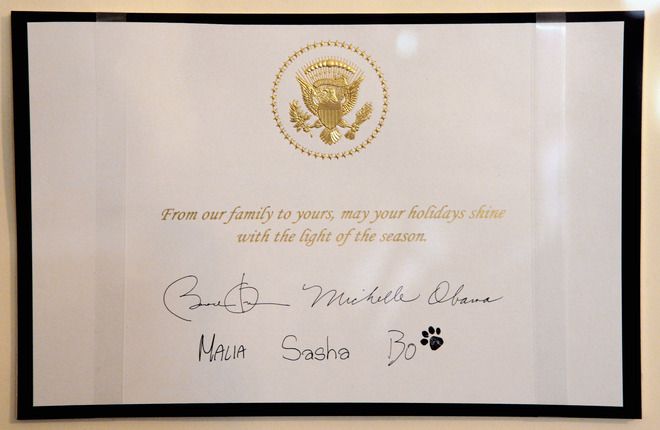 From our family to yours, may your holidays shine
with the light of the season.
Michelle Obama
MALIA Sasha Bo